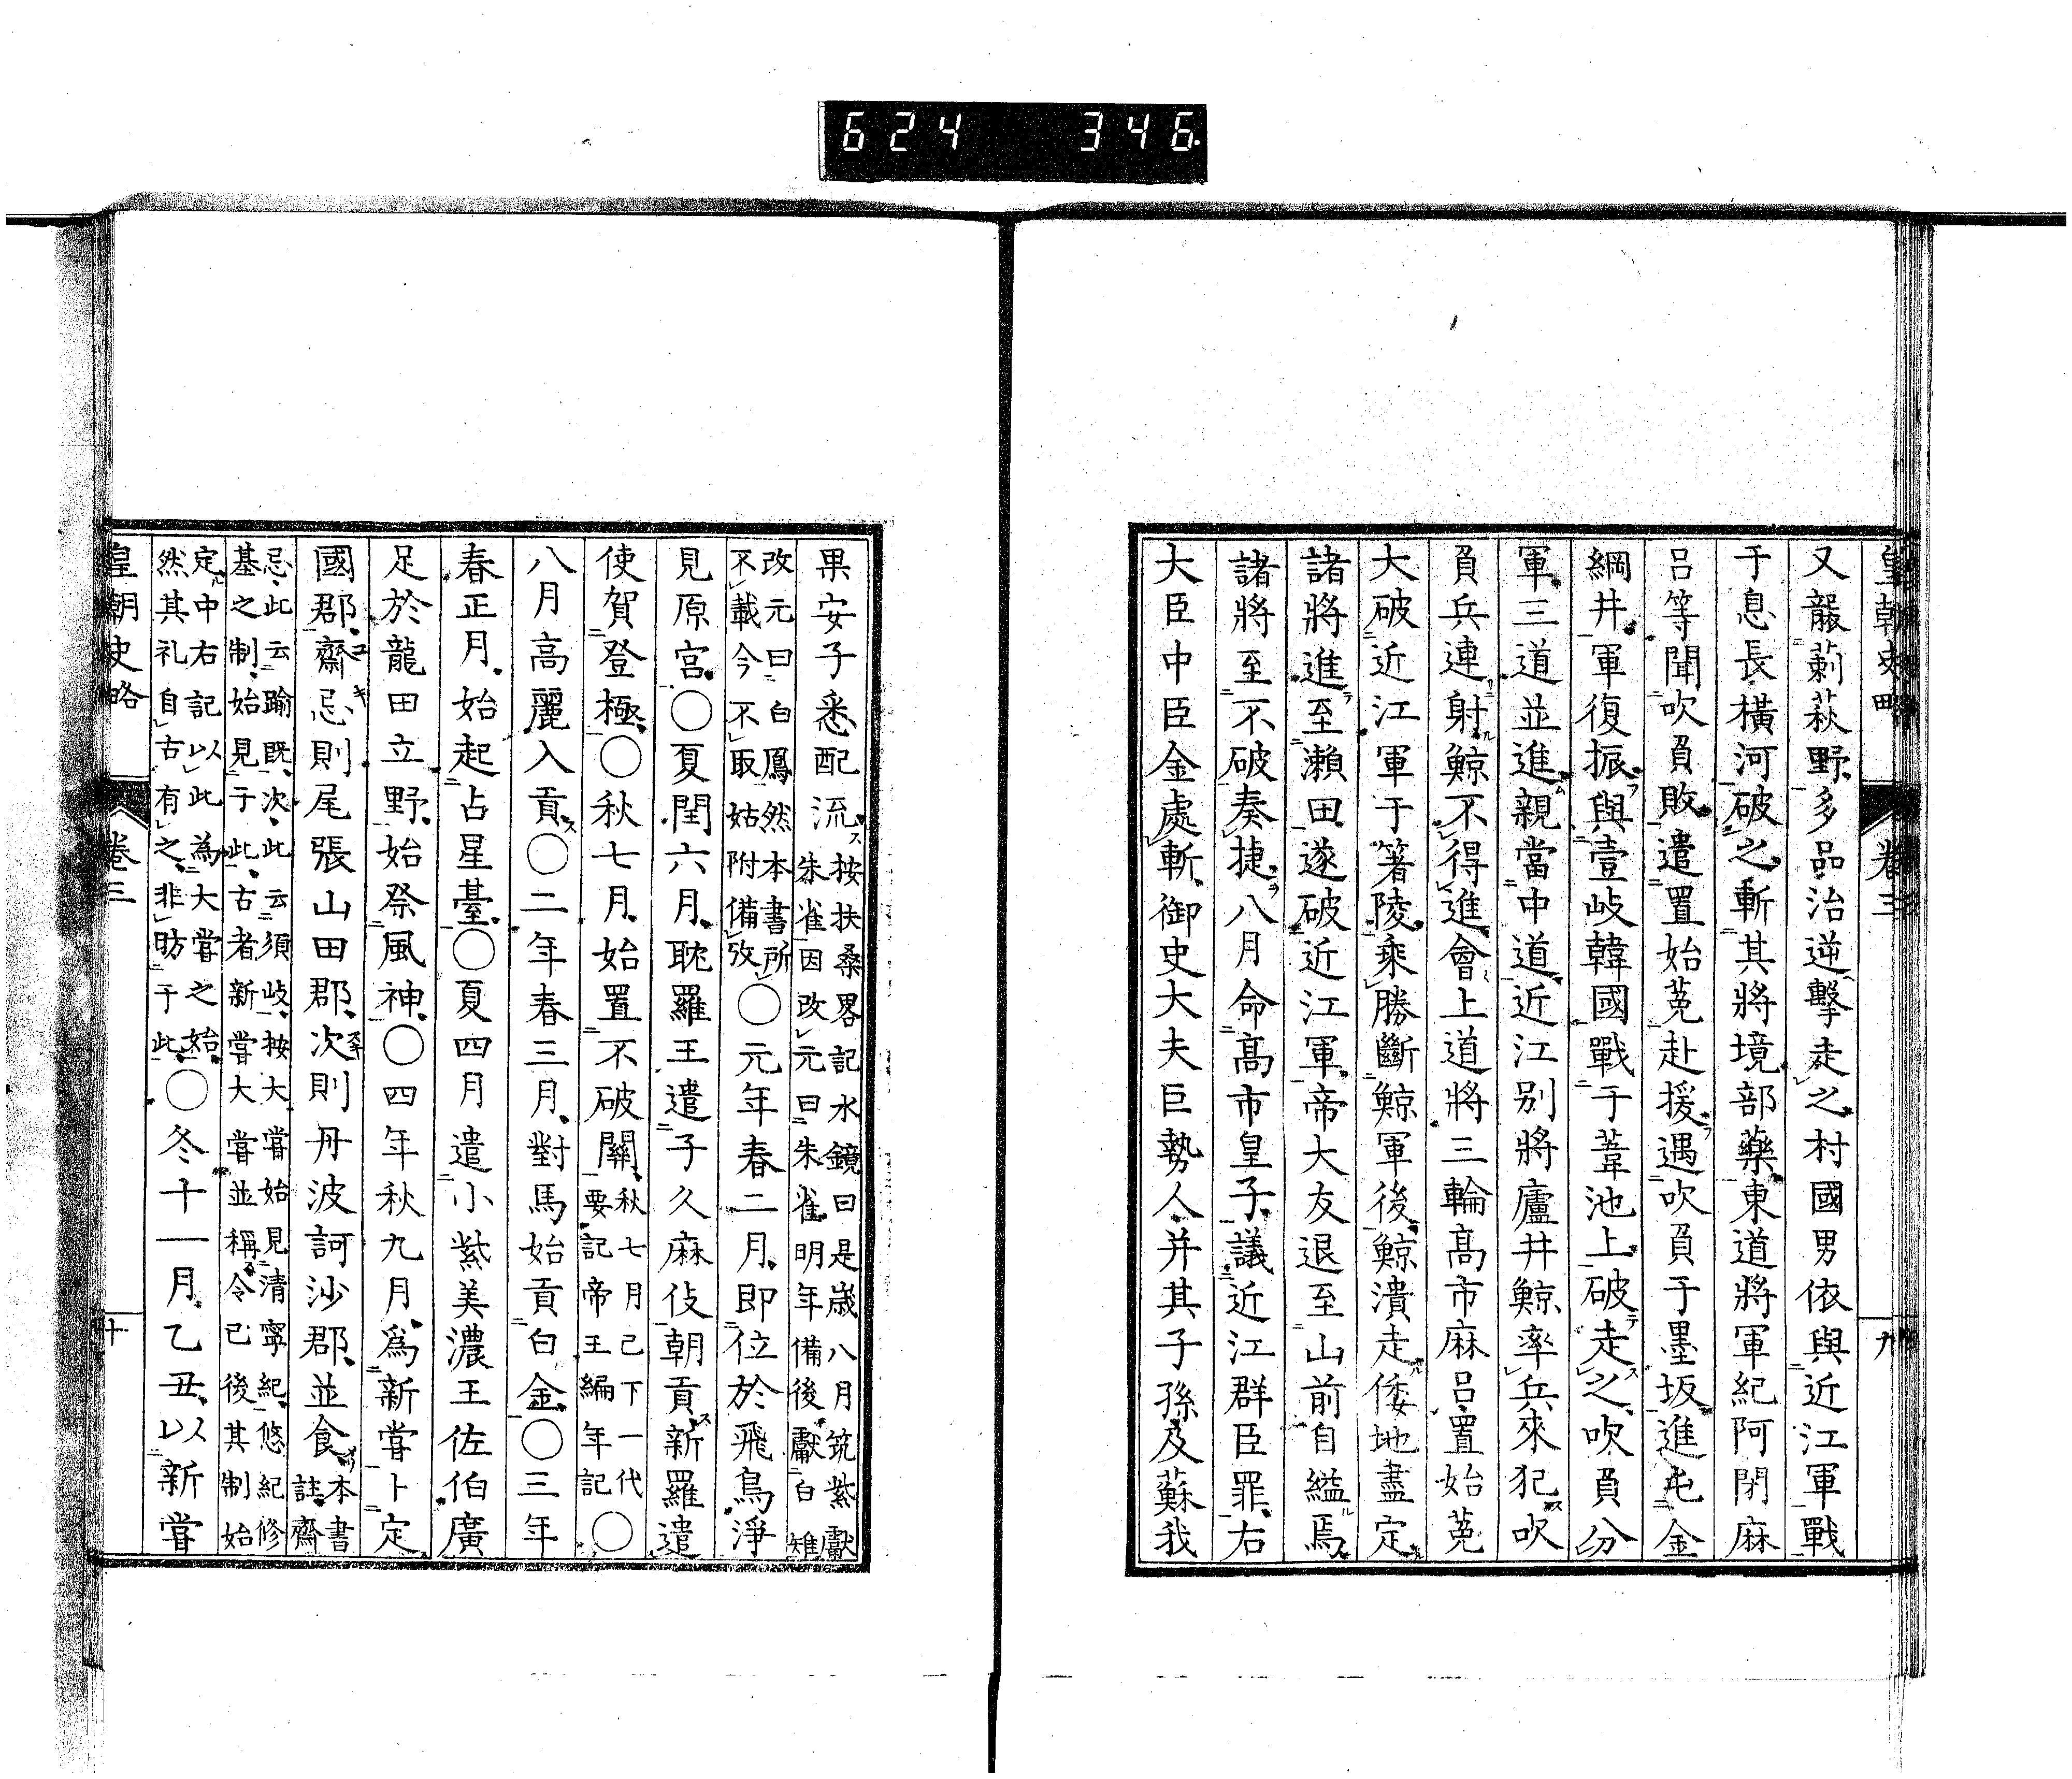 624 346
皇朝史略 卷三 九
又襲莿萩野多品治逆擊走之村國男依與近江軍戰
于息長橫河破之斬其將境部藥東道將軍紀阿閉麻
呂等聞吹負敗遣置始菟赴援遇吹負于墨坂進屯金
綱井軍復振與壹岐韓國戰于葦池上破走之吹負分
軍三道並進親當中道近江别將廬井鯨率兵來犯吹
負兵連射鯨不得進會上道將三輪高市麻呂置始菟
大破近江軍于箸陵乘勝斷鯨軍後鯨潰走倭地盡定
諸將進至瀨田遂破近江軍帝大友退至山前自縊焉
諸將至不破奏捷八月命高市皇子議近江群臣罪右
大臣中臣金處斬御史大夫巨勢人并其子孫及蘇我
果安子悉配流按扶桑畧記水鏡曰是歲八月筑紫獻
朱雀因改元曰朱雀明年備後獻白雉
改元曰白鳳然本書所
不載今不取姑附備攷○元年春二月即位於飛鳥淨
見原宮○夏閏六月耽羅王遣子久麻伎朝貢新羅遣
使賀登極○秋七月始置不破關秋七月己下一代
要記帝王編年記○
八月高麗入貢○二年春三月對馬始貢白金○三年
春正月始起占星臺○夏四月遣小紫美濃王佐伯廣
足於龍田立野始祭風神○四年秋九月爲新嘗卜定
國郡齋忌則尾張山田郡次則丹波訶沙郡並食本書
註齋
忌此云踰既次此云須岐按大嘗始見清寧紀悠紀修
基之制始見于此古者新嘗大嘗並稱令已後其制始
定中右記以此為大嘗之始
然其礼自古有之非昉于此○冬十一月乙丑以新嘗
皇朝史略 卷三 十